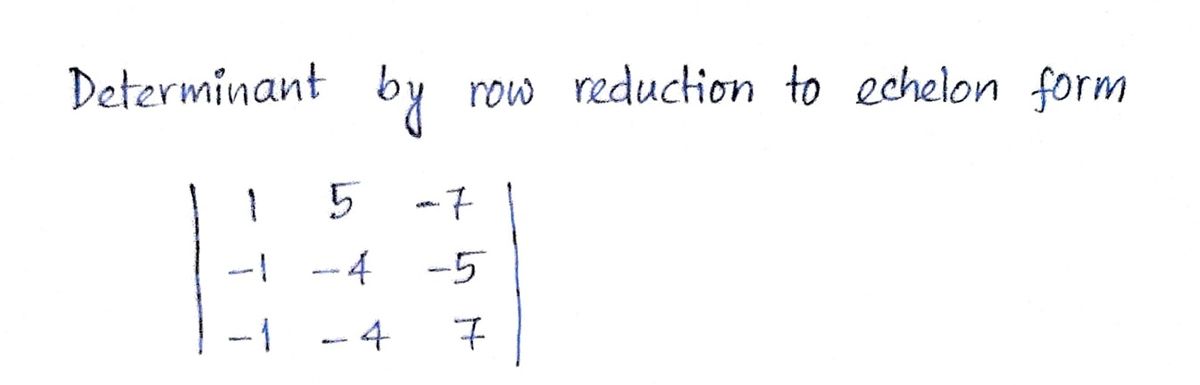 Determinant by row reduction to echelon form
| 1 5 -7 |
| -1 -4 -5 |
| -1 -4 7 |